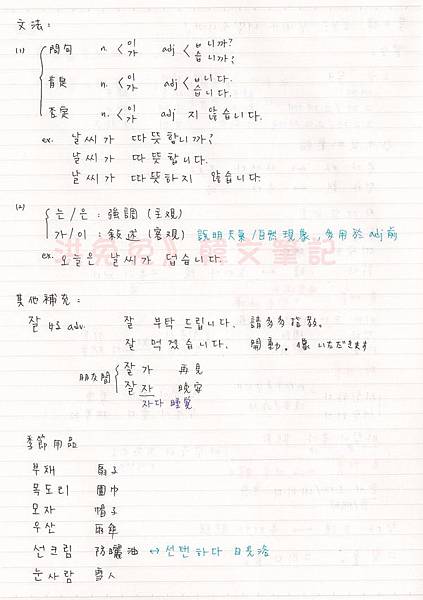 文法:
(1) 問句 n.<이/가 adj<ㅂ니까?/습니까?
肯定 n.<이/가 adj<ㅂ니다./습니다.
否定 n.<이/가 adj 지 않습니다.
ex. 날씨가 따뜻합니까?
날씨가 따뜻합니다.
날씨가 따뜻하지 않습니다.
(2) 는/은:強調(主觀)
가/이:敘述(客觀) 說明天氣/自然現象,多用於adj前
ex. 오늘은 날씨가 덥습니다.
韓文筆記
其他補充:
잘 好好 adv. 잘 부탁드립니다. 請多多指教。
잘 먹겠습니다. 開動。像いただきます
朋友間 잘가 再見
잘자 晚安
자다 睡覺
季節用品
부채 扇子
목도리 圍巾
모자 帽子
우산 雨傘
선크림 防曬油 ↔ 선텐하다 日光浴
눈사람 雪人